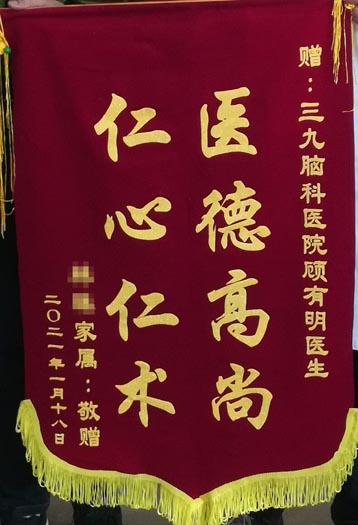 赠：三九脑科医院顾有明医生
医德高尚
仁心仁术
家属：敬赠
二〇二一年一月十八日